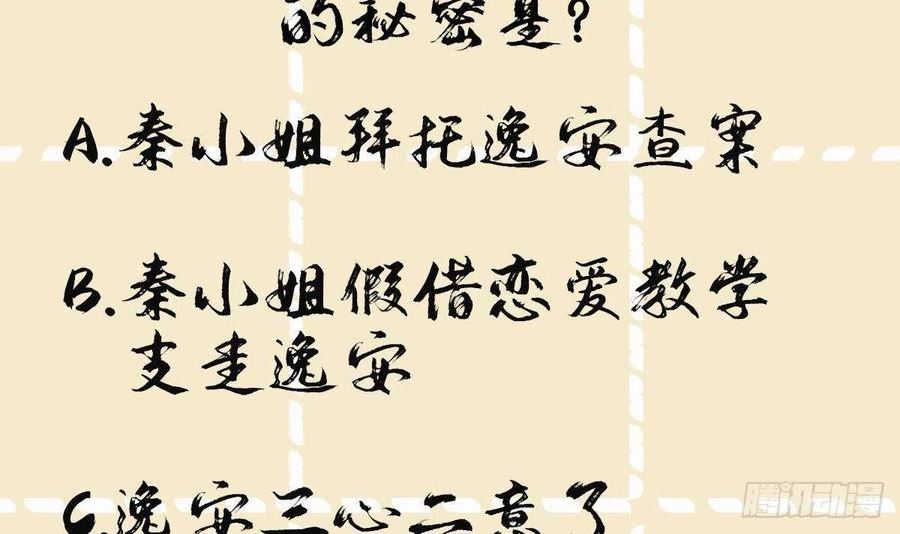 的秘密是?
A.秦小姐拜托逸安查案
B.秦小姐假借恋爱教学
支走逸安
C.逸安三心二意了
腾讯动漫